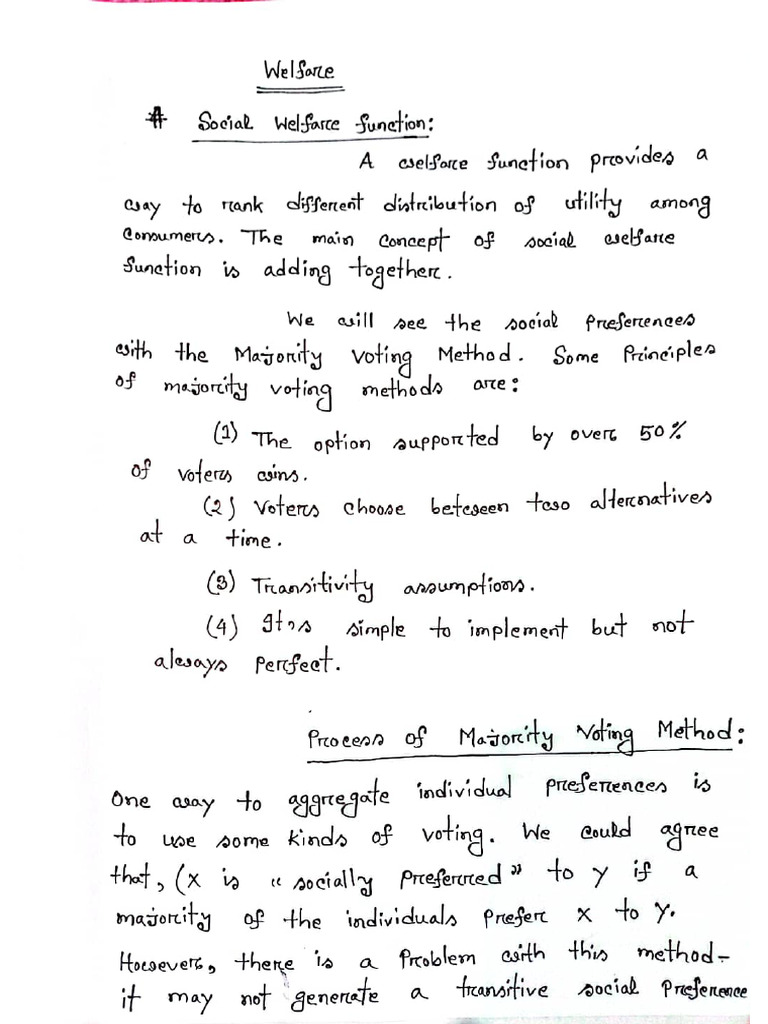 Welfare
# Social Welfare function:
A welfare function provides a
way to rank different distribution of utility among
Consumers. The main concept of social welfare
function is adding together.
We will see the social preferences
with the Majority Voting Method. Some Principles
of majority voting methods are:
(1) The option supported by over 50%
of voters wins.
(2) Voters choose between two alternatives
at a time.
(3) Transitivity assumptions.
(4) It's simple to implement but not
always perfect.
Process of Majority Voting Method:
One way to aggregate individual preferences is
to use some kinds of voting. We could agree
that, (x is "socially preferred" to y if a
majority of the individuals prefer x to y.
However, there is a problem with this method-
it may not generate a transitive social preference